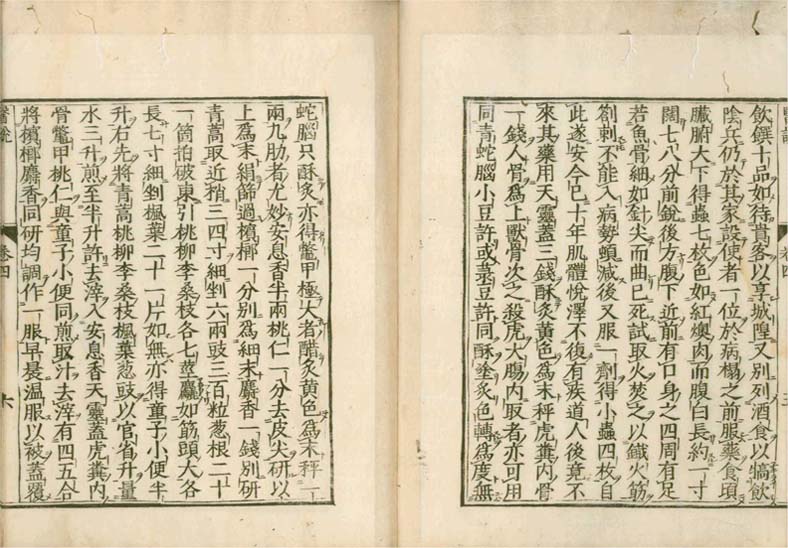 飲饌十品如待貴客以享城隍又別列酒食以犒飲
陰兵仍於其家設使者一位於病榻之前服藥食頃
臟腑大下得蟲七枚色如紅燠肉而腹白長約一寸
闊七八分前銳後方腹下近前有口身之四周有足
若魚骨細如針尖而曲已死試取火焚之以鐵火筋
劄刺不能入病勢頓減後又服一劑得小蟲四枚自
此遂安今已十年肌體悅澤不復有疾道人後竟不
來其藥用天靈蓋三錢酥炙黃色爲末秤虎糞內骨
一錢人骨爲上獸骨次之殺虎大腸內取者亦可用
同青蛇腦小豆許或菉豆許同酥塗炙色轉爲度無
卷四
蛇腦只酥炙亦得鱉甲極大者醋炙黃色爲末秤一
兩九肋者尤妙安息香半兩桃仁一分去皮尖研以
上爲末絹篩過檳榔一分別爲細末麝香一錢別研
青蒿取近梢三四寸細剉六兩豉三百粒葱根二十
一箇拍破東引桃柳李桑枝各七莖麤如筋頭大各
長七寸細剉楓葉二十一片如無亦得童子小便半
升右先將青蒿桃柳李桑枝楓葉葱豉以官省升量
水三升煎至半升許去滓入安息香天靈蓋虎糞內
骨鱉甲桃仁與童子小便同煎取汁去滓有四五合
將檳榔麝香同研均調作一服早晨温服以被蓋覆
醫說
卷四
六